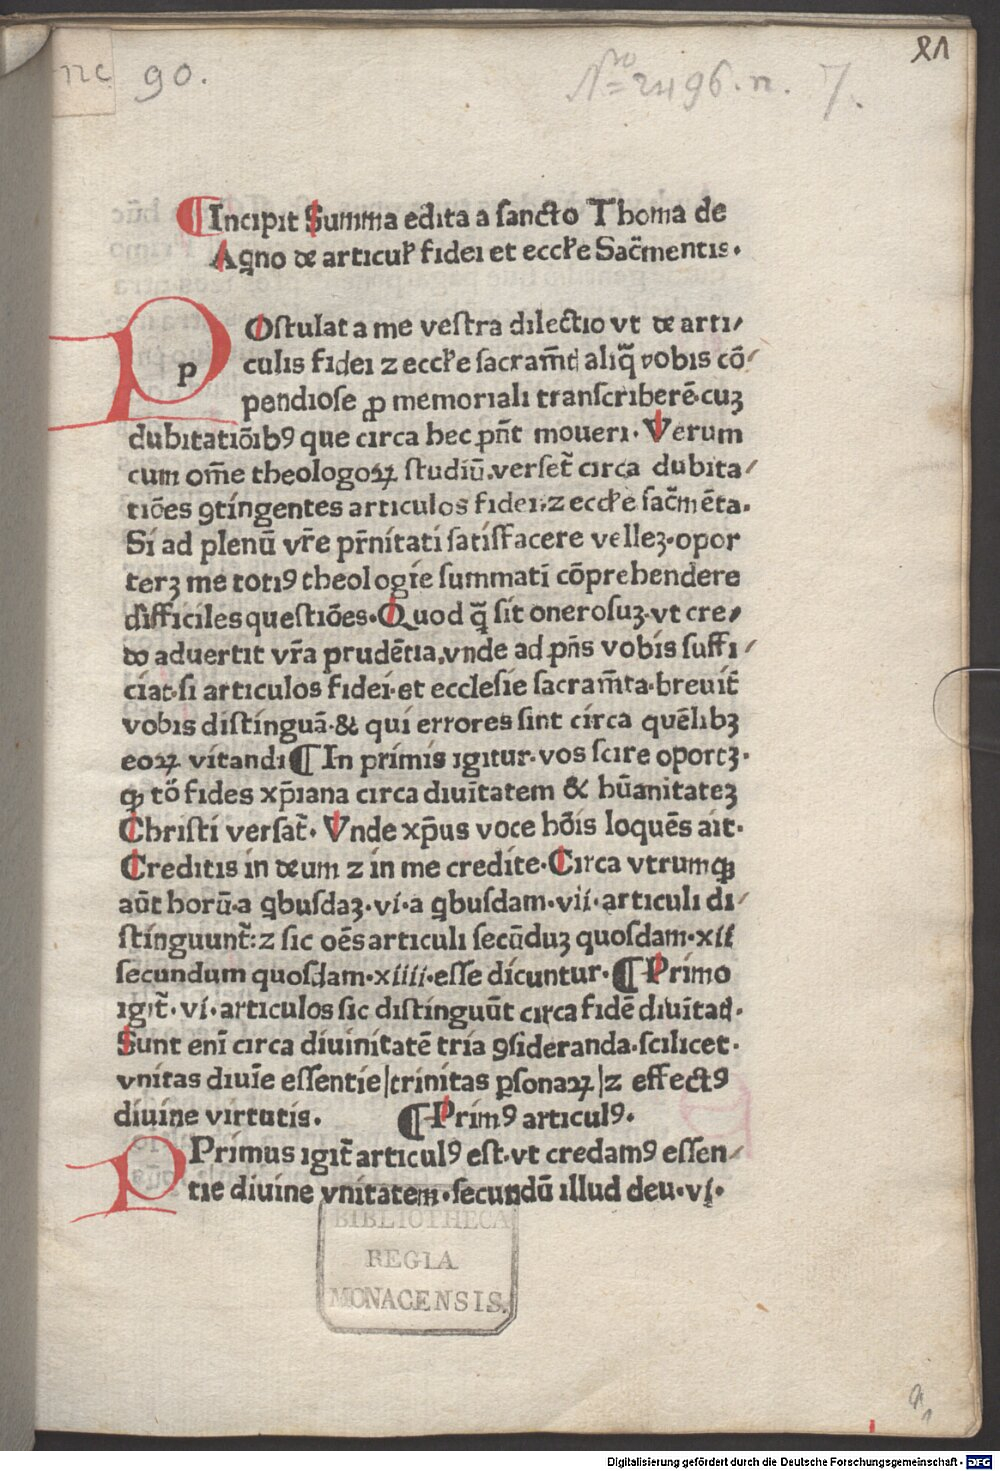 nc 90.
Nro 2496. n. 7.
¶Incipit Summa edita a sancto Thoma de
Aqno de articuł fidei et eccłe Sac̃mentis.
POstulat a me vestra dilectio vt de arti/
culis fidei ⁊ eccłe sacram̃t aliq̃ vobis cō/
pendiose ꝓ memoriali transcriberē.cuꝫ
dubitatiōibꝰ que circa hec pn̄t moueri. Verum
cum om̄e theologoꝝ studiū.verset̃ circa dubita/
tiōes ꝯtingentes articulos fidei.⁊ eccłe sac̃mēta.
Si ad plenū vr̄e pr̄nitati satisfacere velleꝫ.opor
terꝫ me totiꝰ theologie summatī cōprehendere
difficiles questiōes.Quod q̄ sit onerosuꝫ.vt cre/
do aduertit vr̄a prudētia.vnde ad pn̄s vobis suffi/
ciat.si articulos fidei.et ecclesie sacram̃ta.breuit̃
vobis distinguā.& qui errores sint circa quēlibꝫ
eoꝝ vitandi¶In primis igitur.vos scire oportꝫ.
ꝙ tō fides xp̄iana circa diuītatem & hūanitateꝫ
Christi versat̃. Vnde xp̄us voce hōis loquēs ait.
Creditis in deum ⁊ in me credite.Circa vtrumqꝫ
aūt horū.a qbusdaꝫ.vi.a qbusdam.vii.articuli di/
stinguunt̃:⁊ sic oēs articuli secūduꝫ quosdam.xii
secundum quosdam.xiiii.esse dicuntur.¶Primo
igit̃.vi.articulos sic distinguūt circa fidē diuītat.
Sunt enī circa diuinitatē tria ꝯsideranda.scilicet.
vnitas diuīe essentie|trinitas ꝑsonaꝝ|⁊ effectꝰ
diuine virtutis. ¶Primꝰ articulꝰ.
PRimus igit̃ articulꝰ est.vt credamꝰ essen/
tie diuine vnitatem.secundū illud deu.vi.
BIBLIOTHECA
REGIA
MONACENSIS.
Digitalisierung gefördert durch die Deutsche Forschungsgemeinschaft - DFG